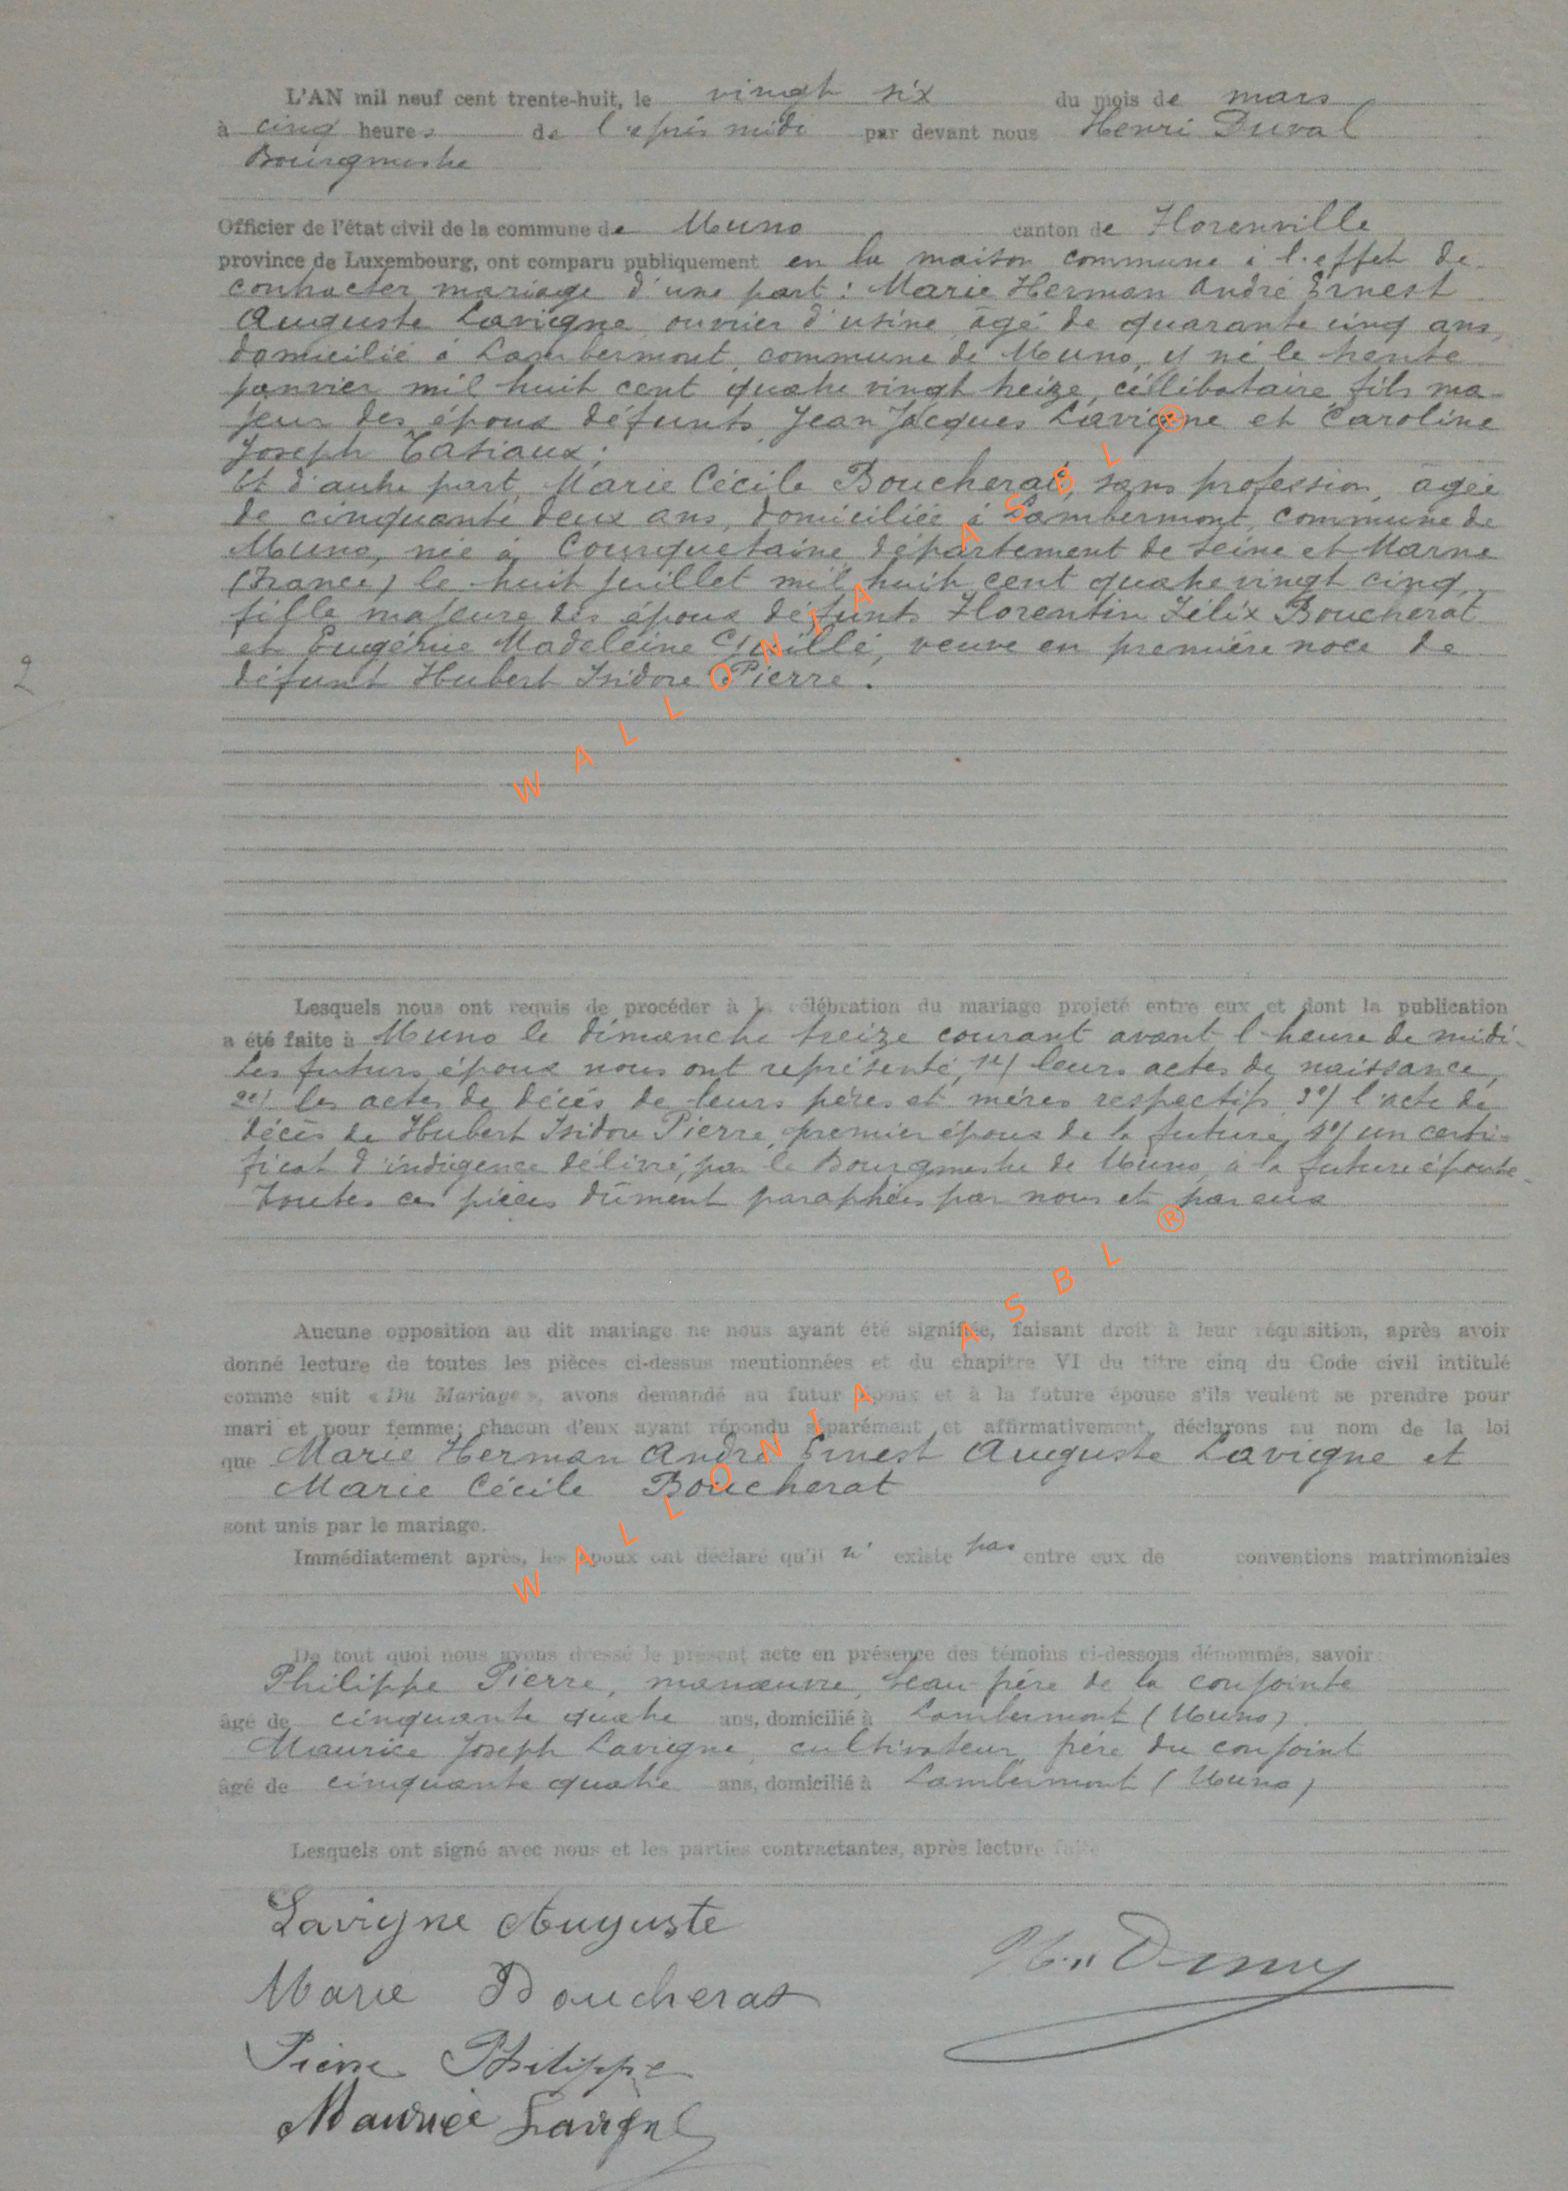 L'AN mil neuf cent trente-huit, le vingt six du mois de mars
à cinq heures de l'après midi par devant nous Henri Duval
Bourgmestre
Officier de l'état civil de la commune de Muno canton de Florenville
province de Luxembourg, ont comparu publiquement en la maison commune à l'effet de
contracter mariage d'une part : Marie Herman André Ernest
Auguste Lavigne, ouvrier d'usine, âgé de quarante cinq ans,
domicilié à Lambermont, commune de Muno, y né le trente
janvier mil huit cent quatre vingt treize, céllibataire, fils ma-
jeur des époux défunts Jean Jacques Lavigne et Caroline
Joseph Tasiaux ;
Et d'autre part, Marie Cécile Boucherat, sans profession, âgée
de cinquante deux ans, domiciliée à Lambermont, commune de
Muno, née à Courquetaine, département de Seine et Marne
(France) le huit juillet mil huit cent quatre vingt cinq,
fille majeure des époux défunts Florentin Félix Boucherat
et Eugénie Madeleine, veuve en première noce de
2
défunt Hubert Isidore Pierre.
Lesquels nous ont requis de procéder à la célébration du mariage projeté entre eux et dont la publication
a été faite à Muno le dimanche treize courant avant l'heure de midi.
Les futurs époux nous ont représenté, 1e/ leurs actes de naissance,
2e/ les actes de décès de leurs pères et mères respectifs, 3e/ l'acte de
décès de Hubert Isidore Pierre, premier époux de la future, 4e/ un certi-
ficat d'indigence délivré par le Bourgmestre de Muno, à la future épouse.
Toutes ces pièces dûment paraphées par nous et par eux
Aucune opposition au dit mariage ne nous ayant été signifiée, faisant droit à leur réquisition, après avoir
donné lecture de toutes les pièces ci-dessus mentionnées et du chapitre VI du titre cinq du Code civil intitulé
comme suit « Du Mariage », avons demandé au futur époux et à la future épouse s'ils veulent se prendre pour
mari et pour femme; chacun d'eux ayant répondu séparément et affirmativement, déclarons au nom de la loi
que Marie Herman André Ernest Auguste Lavigne et
Marie Cécile Boucherat
sont unis par le mariage.
Immédiatement après, les époux ont déclaré qu'il n' existe pas entre eux de conventions matrimoniales
De tout quoi nous avons dressé le présent acte en présence des témoins ci-dessous dénommés, savoir :
Philippe Pierre, manœuvre, beau-frère de la conjointe
âgé de cinquante quatre ans, domicilié à Lambermont (Muno).
Maurice Joseph Lavigne, cultivateur, frère du conjoint
âgé de cinquante quatre ans, domicilié à Lambermont (Muno)
Lesquels ont signé avec nous et les parties contractantes, après lecture faite
Lavigne Auguste
Marie Boucherat
Pierre Philippe
Maurice Lavigne
WALLONIA ASBL ®
WALLONIA ASBL ®